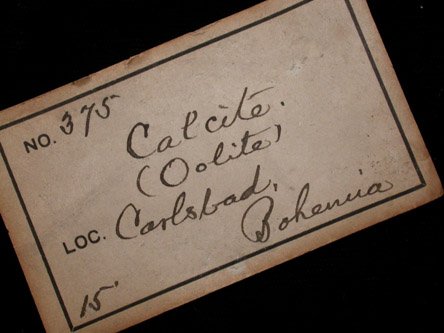 NO. 375
Calcite.
(Oolite)
LOC. Carlsbad,
Bohemia
15'